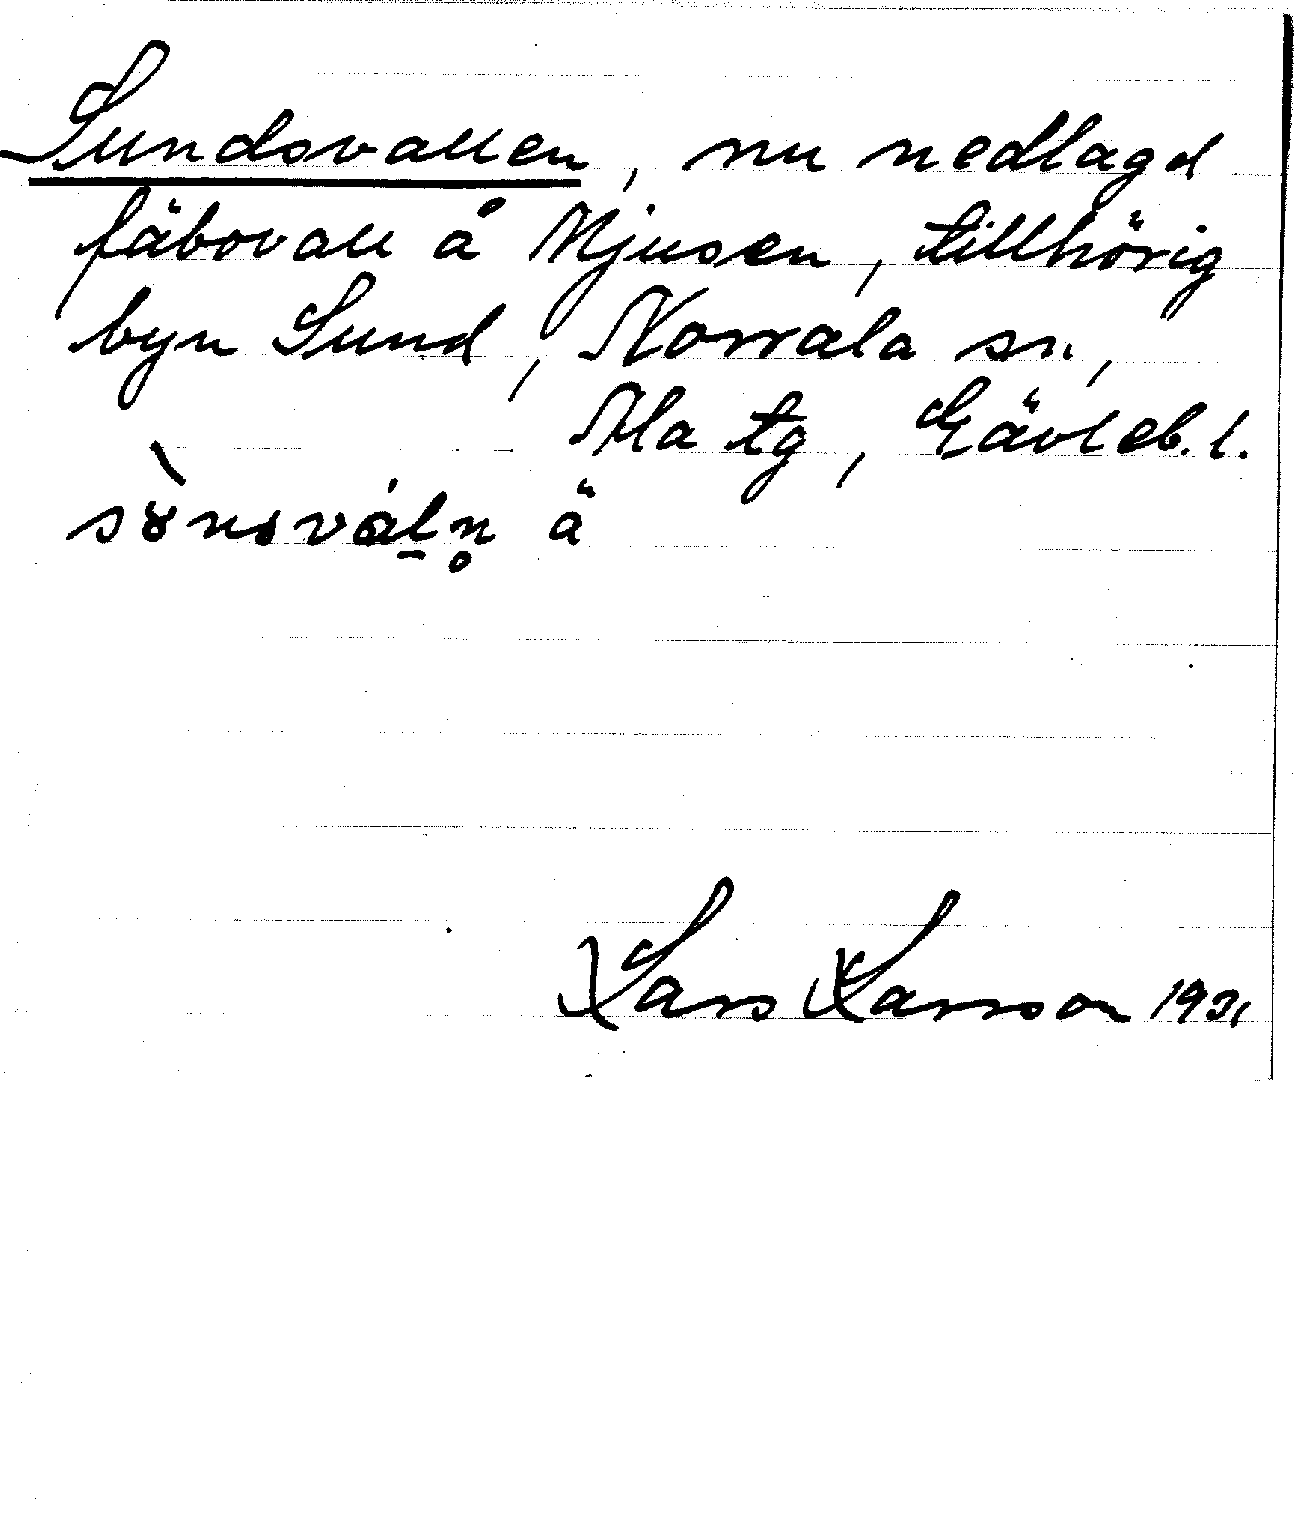 Sundsvallen, nu nedlagd
fäbovall å Njusen, tillhörig
byn Sund, Norrala sn,
Ala tg, Gävleb. l.
Lars Larsson 1931